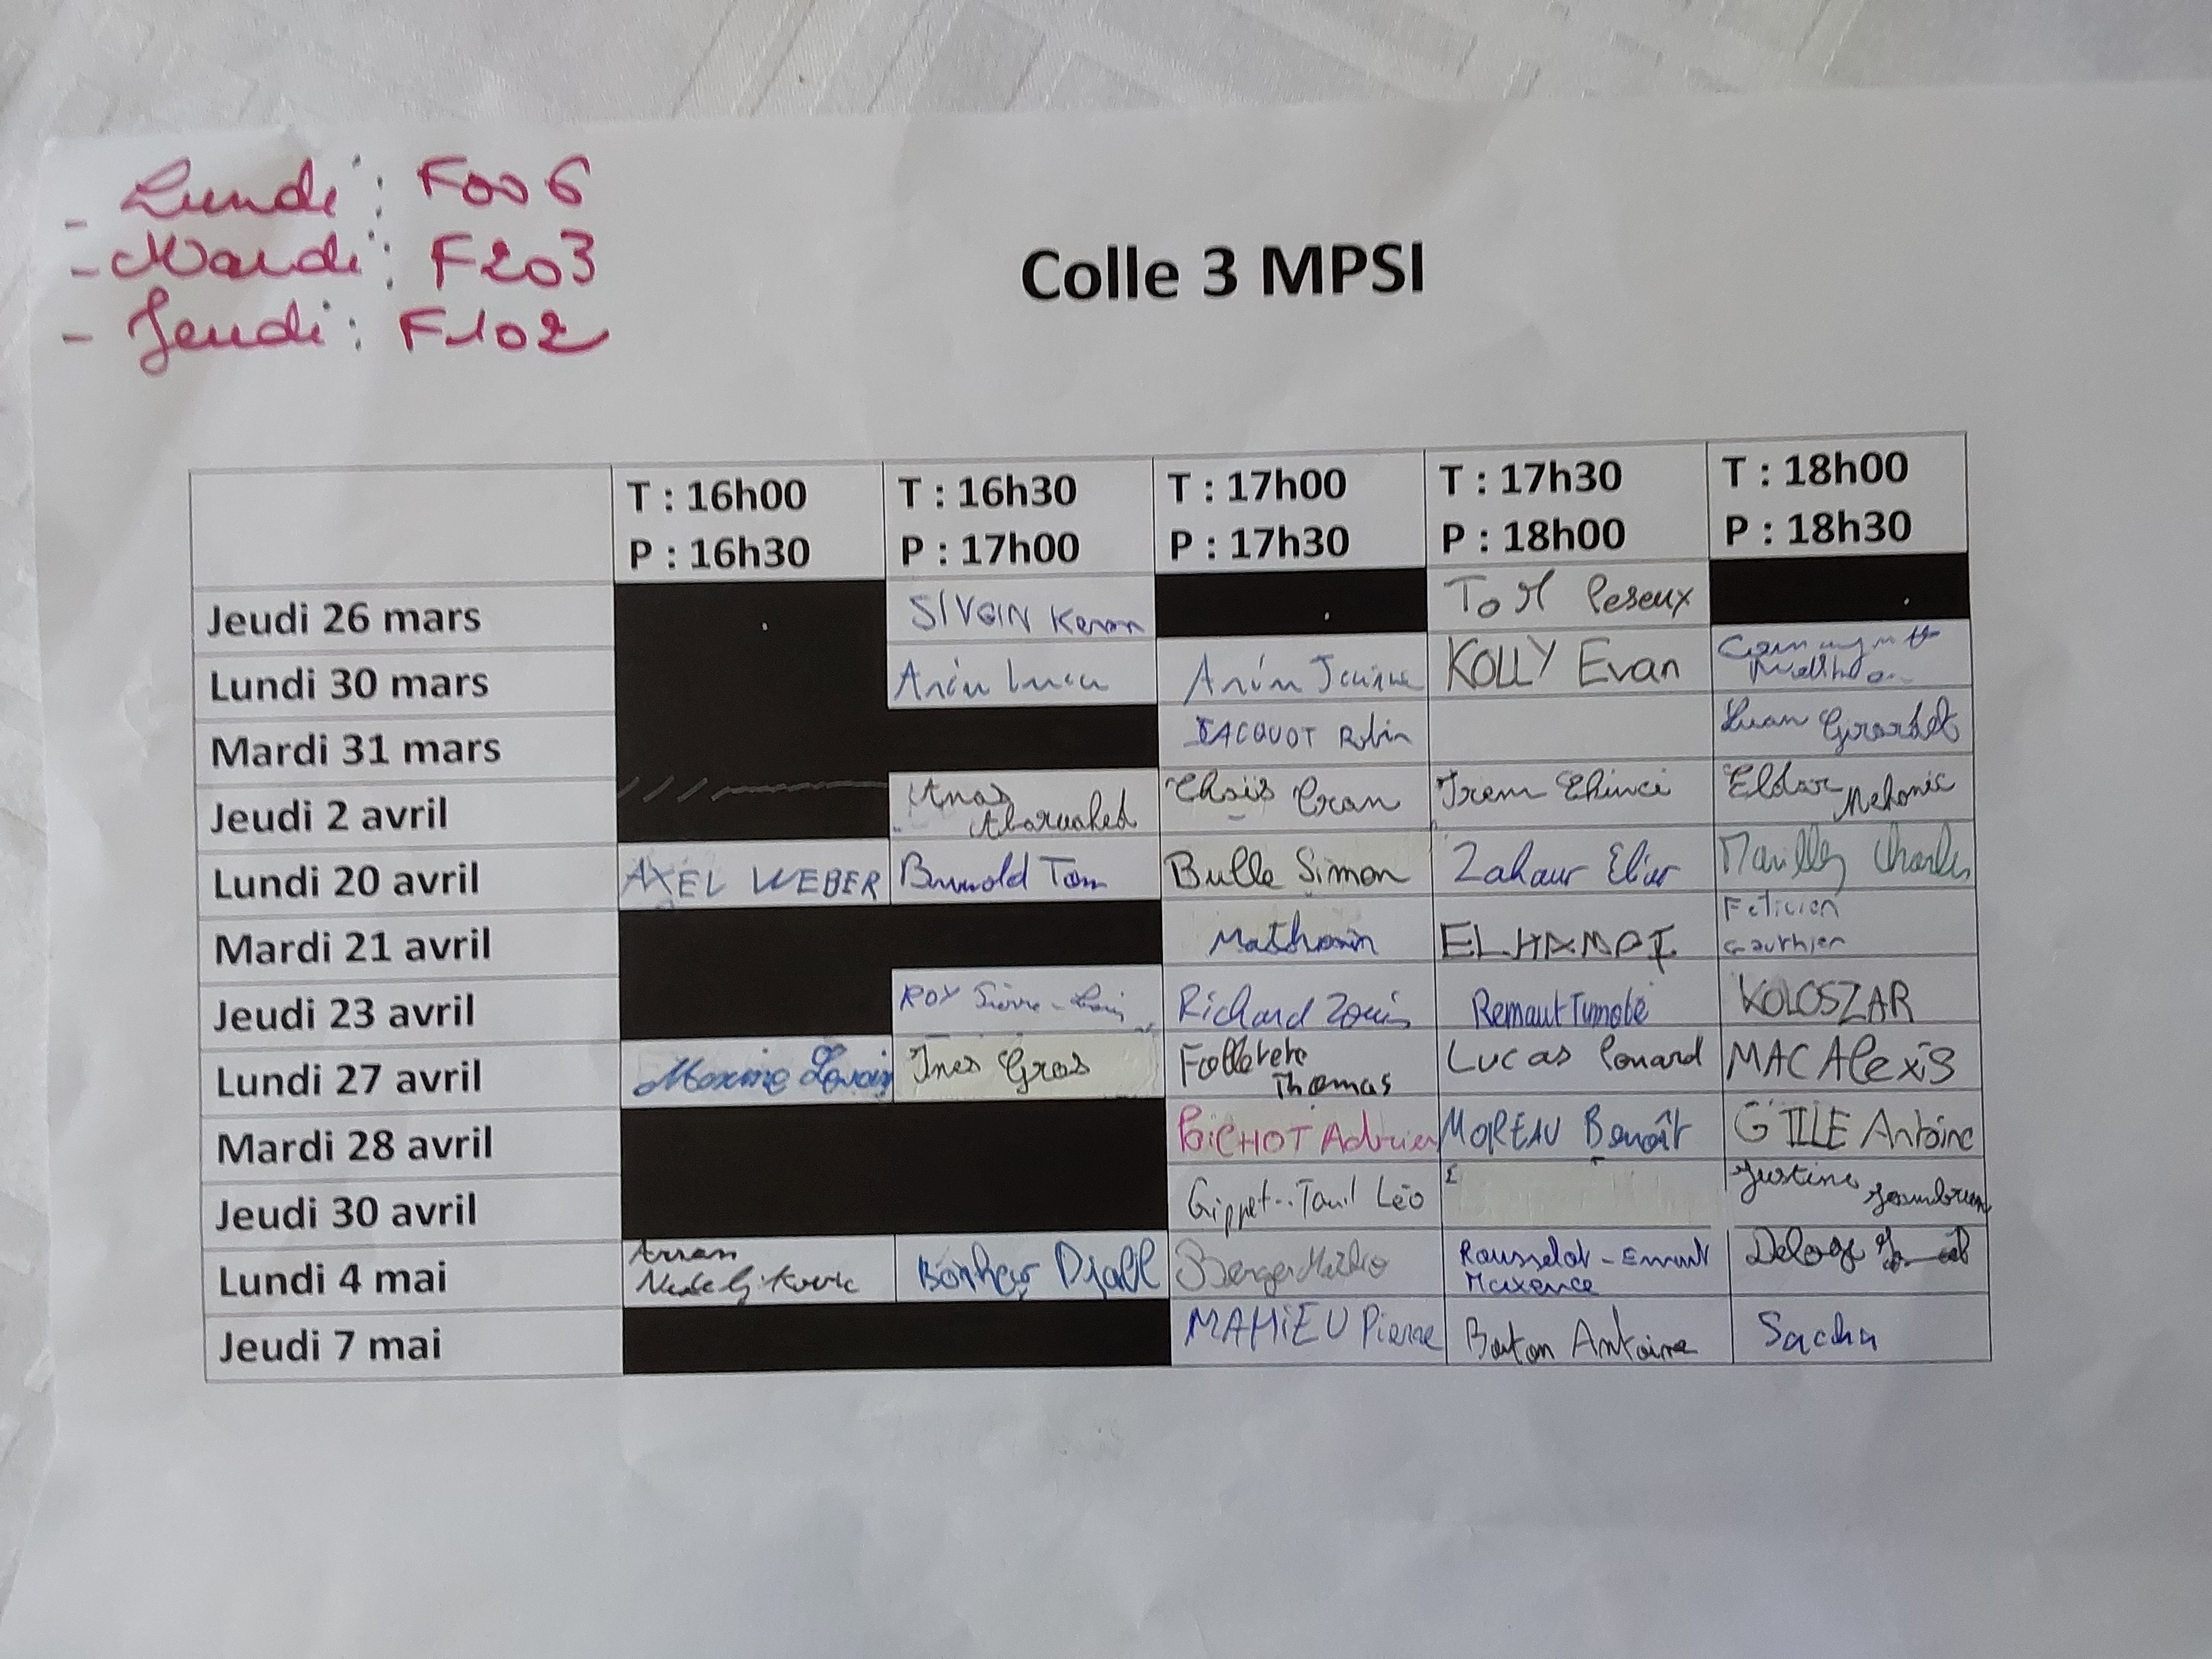 - Lundi : F006
- Mardi : F203
- Jeudi : F102
Colle 3 MPSI
T : 16h00 T : 16h30 T : 17h00 T : 17h30 T : 18h00
P : 16h30 P : 17h00 P : 17h30 P : 18h00 P : 18h30
Jeudi 26 mars SIVGIN Keran Tom Peseux
Lundi 30 mars KOLLY Evan
Mardi 31 mars JACQUOT Robin Luan Girardet
Jeudi 2 avril Anas Thaïs Cran Irem Ekinci Eldar Mehonic
Lundi 20 avril AXEL WEBER Brunold Tom Bulle Simon Zahaur Elias Mailley Charles
Mardi 21 avril Mathonin ELHAMDI Felicien
Gauthier
Jeudi 23 avril ROY Pierre-Louis Richard Louis Remaut Timoté KOLOSZAR
Lundi 27 avril Maxime Ines Gros Folletete
Thomas Lucas Ponard MAC Alexis
Mardi 28 avril PAICHOT Adrien MOREAU Benoît GTILE Antoine
Jeudi 30 avril Gippet--Tout Léo Justine
Lundi 4 mai Bonheur Djalil Berger Mathéo Rousselot-
Maxence
Jeudi 7 mai MAHIEU Pierre Boton Antoine Sacha